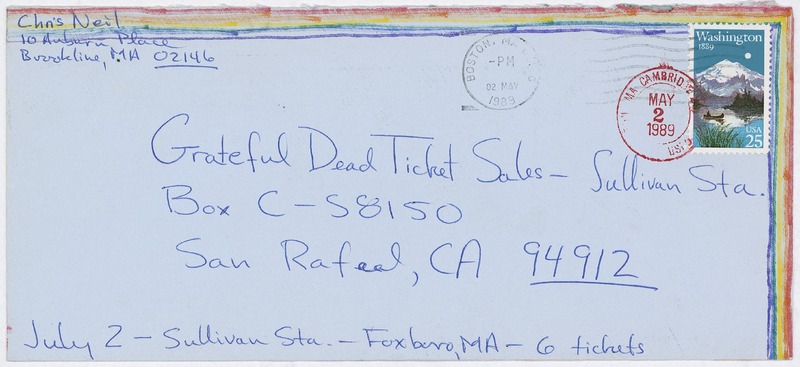 Chris Neil
10 Auburn Place
Brookline, MA 02146
BOSTON, MA
-PM
02 MAY
1989
MA CAMBRIDGE
MAY
2
1989
USPS
Washington
1889
USA
25
Grateful Dead Ticket Sales – Sullivan Sta.
Box C-S8150
San Rafael, CA 94912
July 2 – Sullivan Sta. – Foxboro, MA – 6 tickets